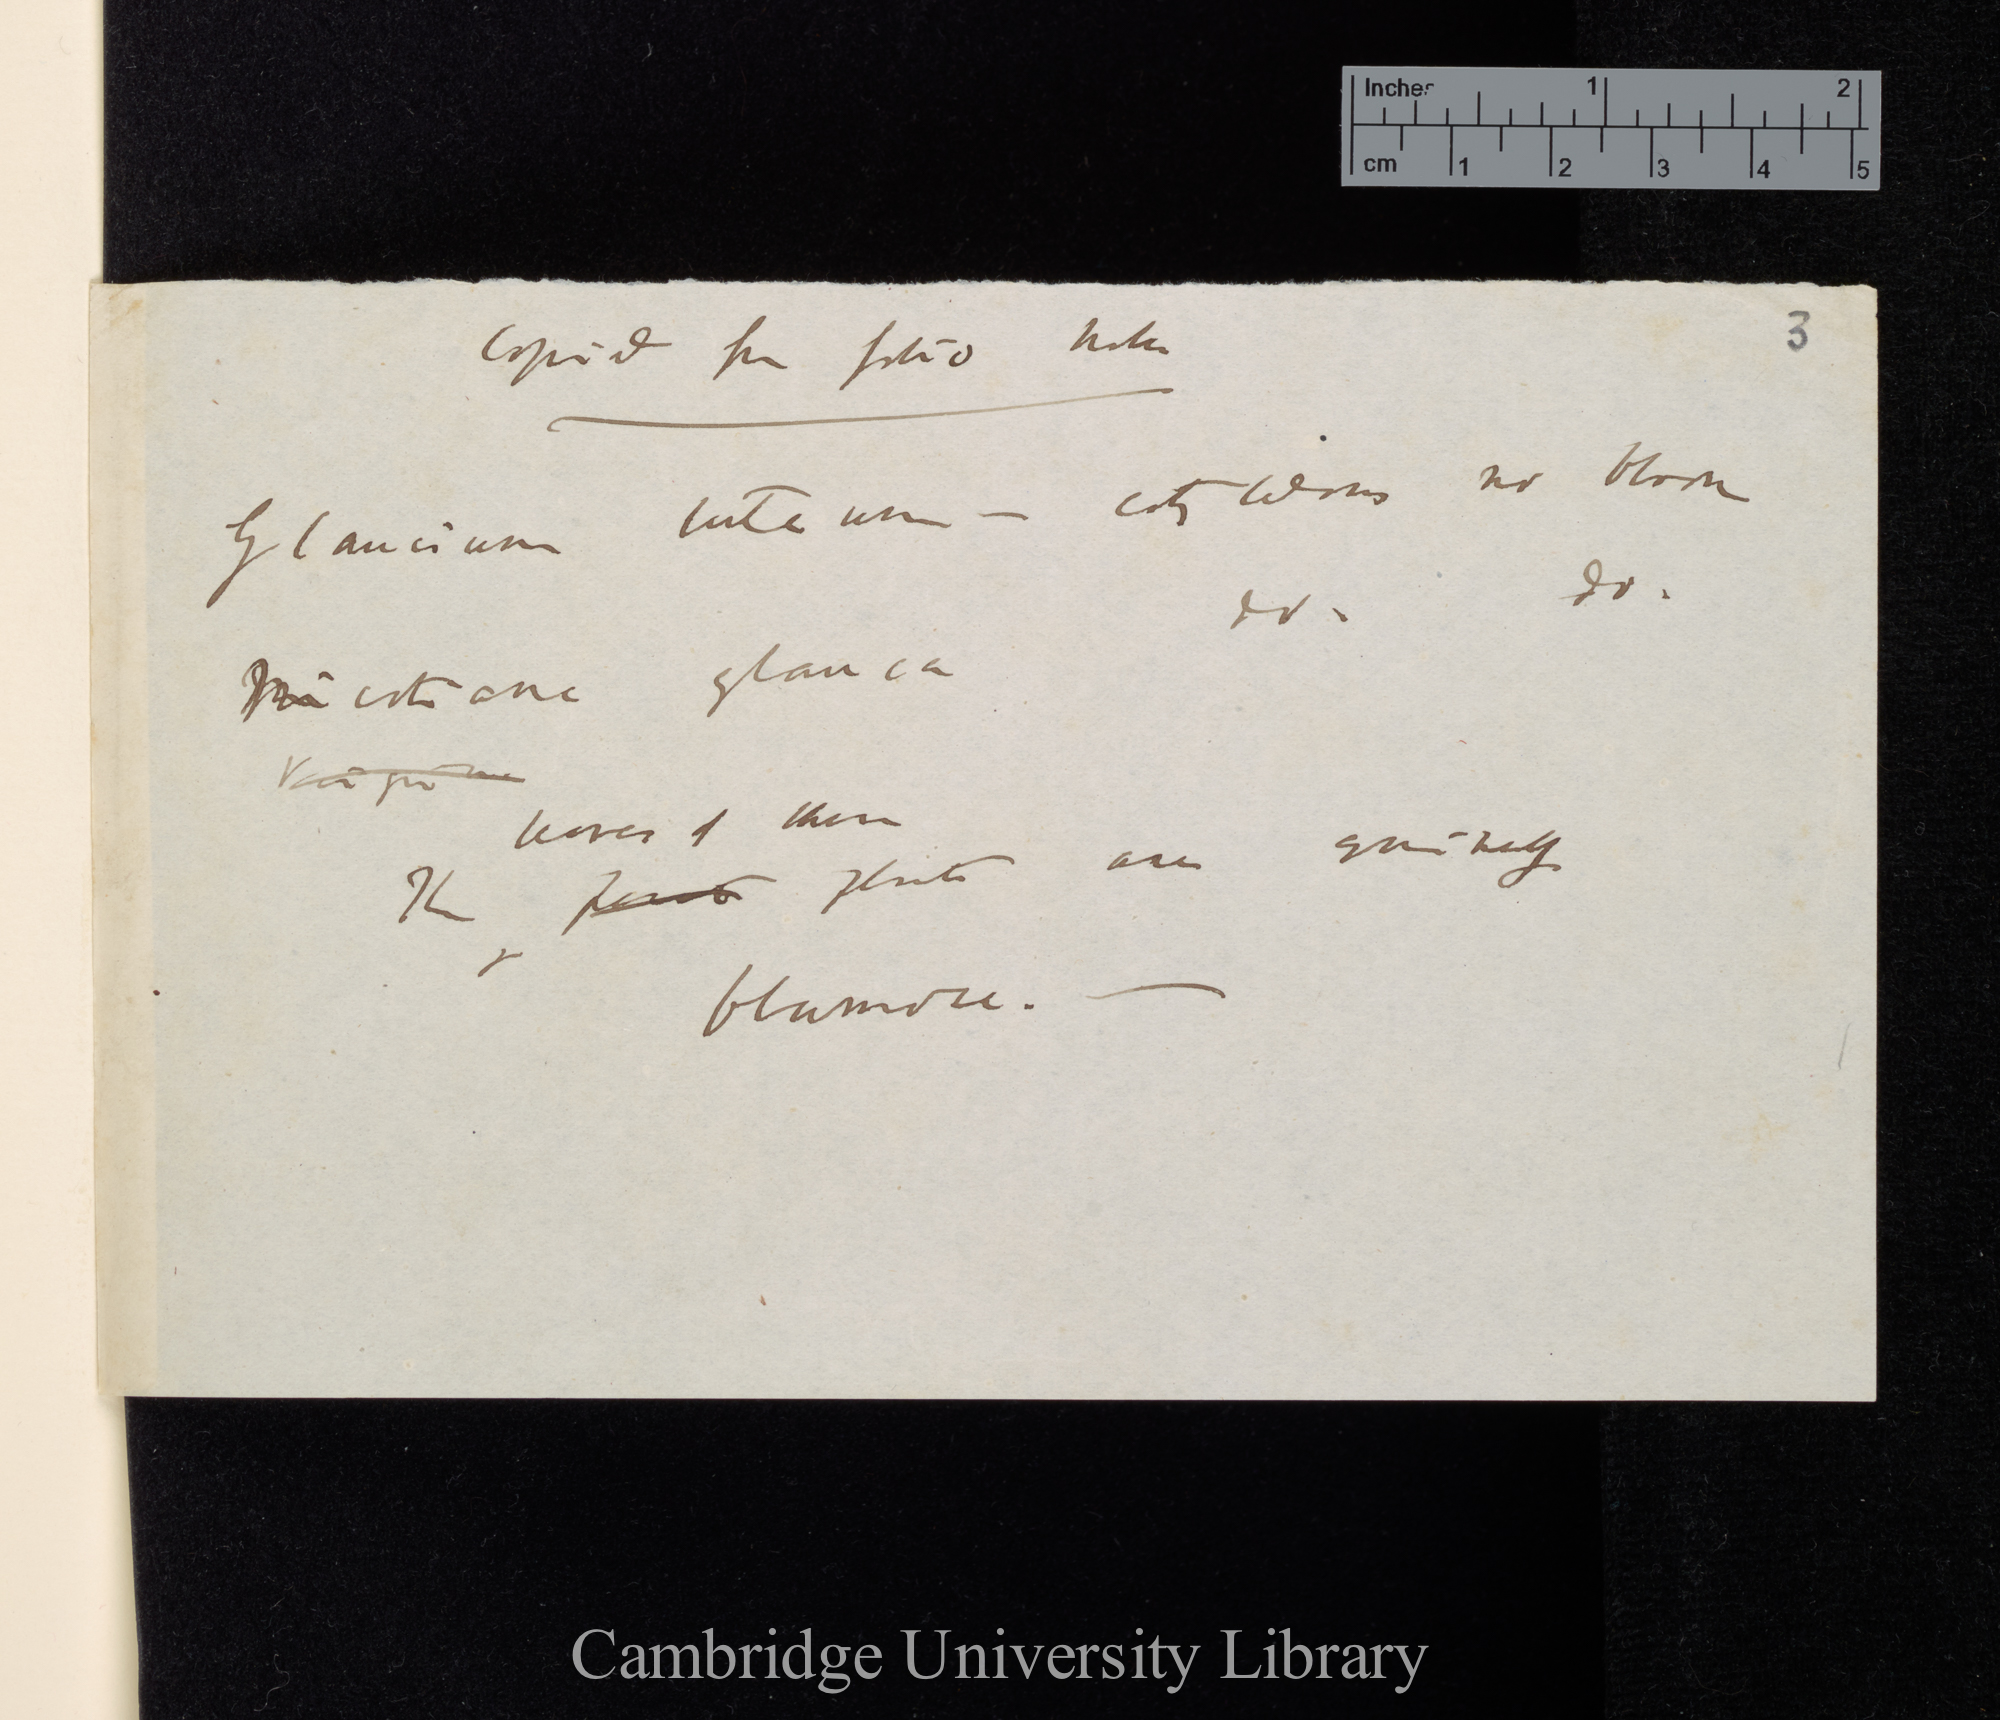 Inches 1 2
cm 1 2 3 4 5
3
Copied from folio notes
Glaucium luteum — cotyledons no bloom
do. do.
Nicotiana glauca
leaves of these
The plants are
Cambridge University Library